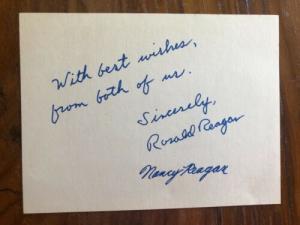 With best wishes,
from both of us.
Sincerely,
Ronald Reagan
Nancy Reagan